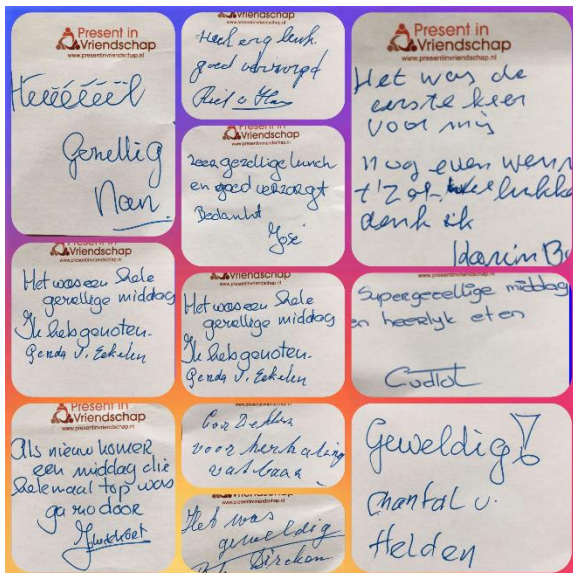 Present in
Vriendschap
www.presentinvriendschap.nl
Heéééééél
Gezellig
Nan
Heel erg leuk
goed verzorgd
Vriendschap
www.presentinvriendschap.nl
zeer gezellige lunch
en goed verzorgt
Bedankt
José
Present in
Vriendschap
www.presentinvriendschap.nl
Het was de
eerste keer
voor mij
nog even wenn
t'Zal wel lukke
denk ik
Karin B
Vriendschap
www.presentinvriendschap.nl
Het was een hele
gezellige middag
Ik heb genoten.
Gerda v. Eekelen
Vriendschap
www.presentinvriendschap.nl
Het was een hele
gezellige middag
Ik heb genoten.
Gerda v. Eekelen
www.presentinvriendschap.nl
Supergezellige middag
en heerlijk eten
Present in
Vriendschap
www.presentinvriendschap.nl
Als nieuwkomer
een middag die
helemaal top was
ga zo door
Vriendschap
www.presentinvriendschap.nl
Cor Dekkers
voor herhaling
vatbaar
www.presentinvriendschap.nl
Het was
geweldig
Geweldig!
Chantal v.
Helden